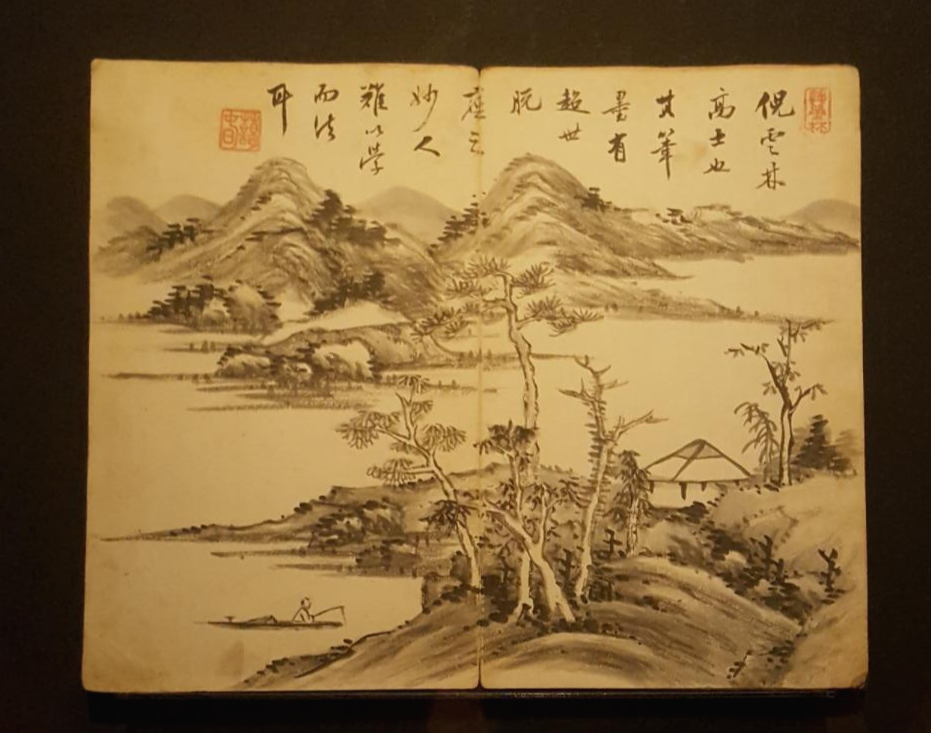 倪雲林
高士也
其筆
墨有
超世
脫
塵之
妙人
難以學
而法
耳